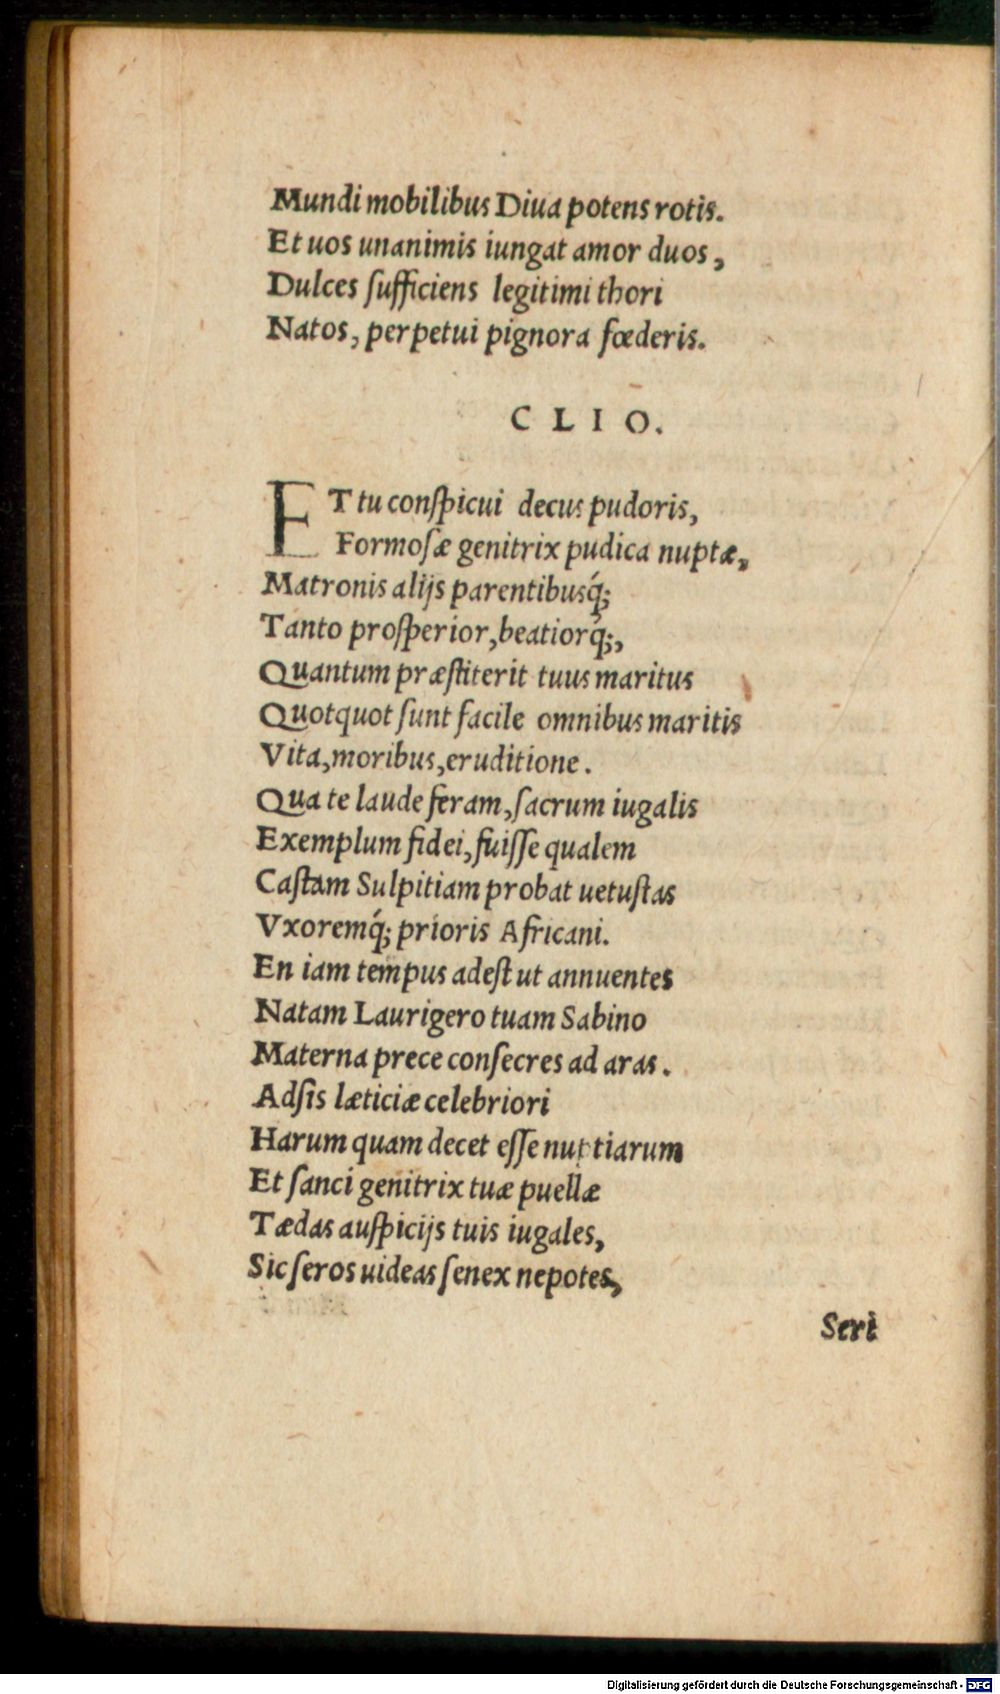 Mundi mobilibus Diua potens rotis.
Et uos unanimis iungat amor duos,
Dulces ſufficiens legitimi thori
Natos, perpetui pignora fœderis.
CLIO.
ET tu conſpicui decus pudoris,
Formoſæ genitrix pudica nuptæ,
Matronis alijs parentibusq́;
Tanto proſperior, beatiorq́;,
Quantum præſtiterit tuus maritus
Quotquot ſunt facile omnibus maritis
Vita, moribus, eruditione.
Qua te laude feram, ſacrum iugalis
Exemplum fidei, fuiſſe qualem
Caſtam Sulpitiam probat uetuſtas
Vxoremq́; prioris Africani.
En iam tempus adeſt ut annuentes
Natam Laurigero tuam Sabino
Materna prece conſecres ad aras.
Adſis læticiæ celebriori
Harum quam decet eſſe nuptiarum
Et ſanci genitrix tuæ puellæ
Tædas auſpicijs tuis iugales,
Sic ſeros uideas ſenex nepotes,
Seri
Digitalisierung gefördert durch die Deutsche Forschungsgemeinschaft - DFG